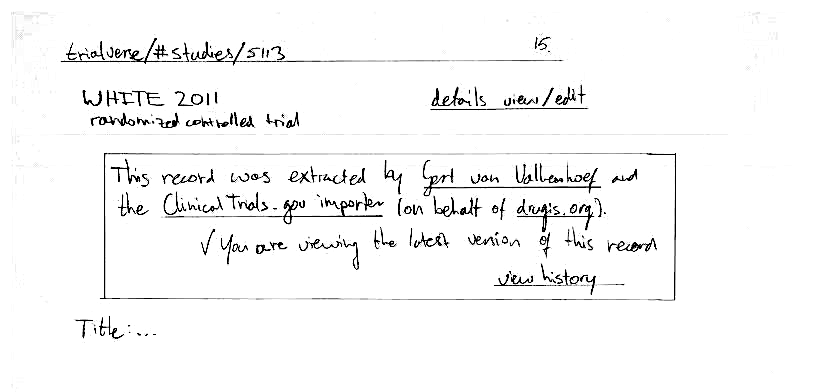 15.
trialverse/#studies/5113
WHITE 2011
details view/edit
randomized controlled trial
This record was extracted by Gert van Valkenhoef and
the ClinicalTrials.gov importer (on behalf of drugis.org).
✓ You are viewing the latest version of this record
view history
Title:...